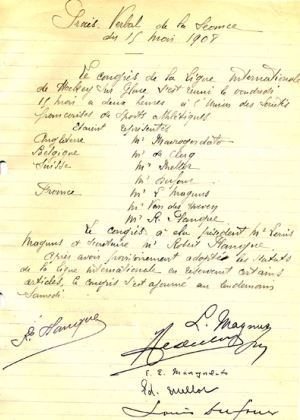 Procès Verbal de la Séance
du 15 mai 1908
Le congrès de la Ligue Internationale
de Hockey sur Glace s'est réuni le vendredi
15 mai à deux heures à l'Union des Sociétés
françaises de Sports athlétiques
Etaient représentés
Angleterre Mr Mavrogordato
Belgique Mr de Clerq
Suisse Mr Mellor
Mr Dufour
France Mr L Magnus
Mr Van der Hoeven
Mr R. Planque
Le congrès a élu président Mr Louis
Magnus et secrétaire Mr Robert Planque
Après avoir provisoirement adopté les statuts
de la Ligue Internationale en réservant certains
articles, le congrès s'est ajourné au lendemain
Samedi.
R. Planque
L. Magnus
E. E. Mavrogordato
Ed. Mellor
Louis Dufour